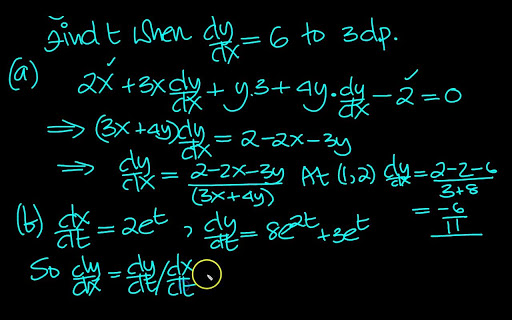 Find t when dy/dx = 6 to 3dp.
(a) 2x + 3x dy/dx + y.3 + 4y.dy/dx - 2 = 0
⇒ (3x+4y)dy/dx = 2-2x-3y
⇒ dy/dx = 2-2x-3y/(3x+4y) At (1,2) dy/dx = 2-2-6/3+8
= -6/11
(b) dx/dt = 2e^t, dy/dt = 8e^2t + 3e^t
So dy/dx = dy/dt / dx/dt